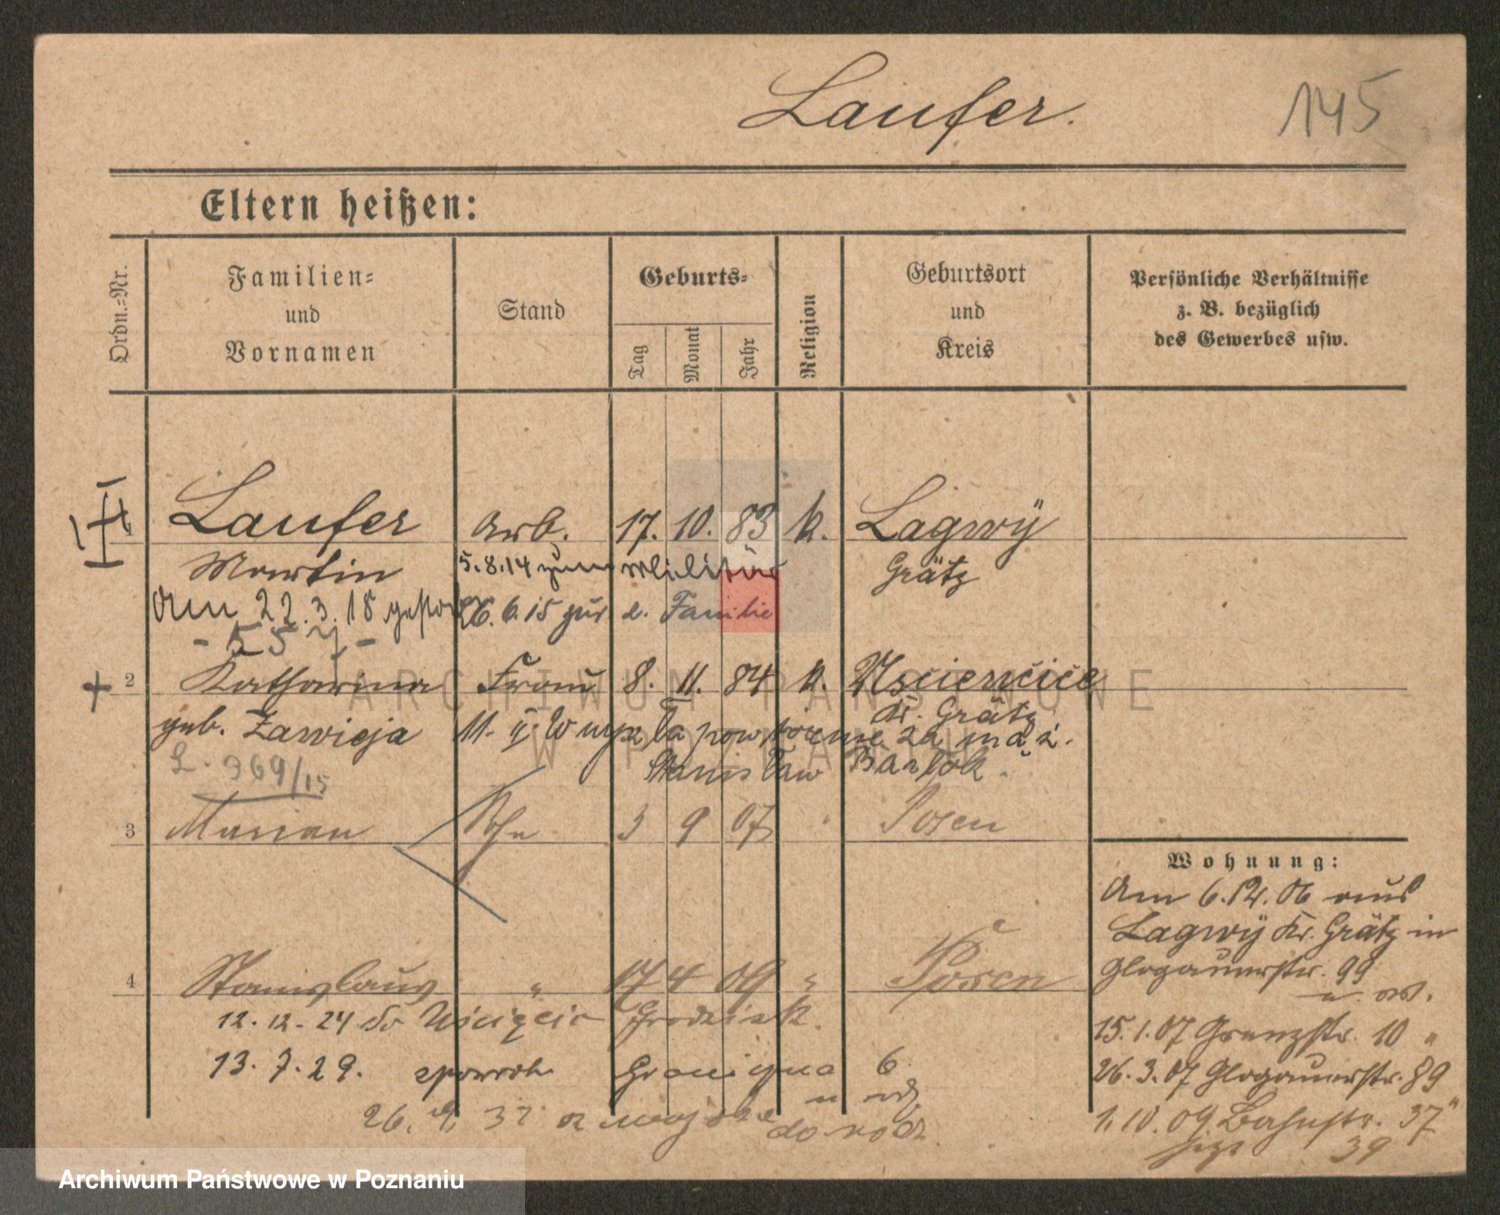 Laufer.
145
Eltern heißen:
Ordn.-Nr.
Familien-
und
Vornamen
Stand
Geburts-
Tag
Monat
Jahr
Religion
Geburtsort
und
Kreis
Persönliche Verhältnisse
z. B. bezüglich
des Gewerbes usw.
1 Laufer Arb. 17. 10. 83 k. Lagwÿ
Martin 5.8.14 zum Militär Grätz
Am 22.3.18 26.6.15 zur d. Familie
- 557 -
2 Katharina Frau 8. 11. 84 k. Kr. Grätz
geb. Zawieja 11. II. 20 wyszła powtórnie za mąż.
Stanisław Bartok.
L. 369/15
3 Marian Sohn 3 9 07 " Posen
4 Stanislaus " 17 4 09 " Posen
12.-12.-24 do Grodzisk.
13. 7. 29. Graniczna 6
26. 9. 32 z wojska do rodz.
Wohnung:
Am 6.12.06 aus
Lagwÿ Kr. Grätz in
Glogauerstr. 99
15.1.07 Grenzstr. 10 "
26.3.07 Glogauerstr. 89
1.10.09 Bahnstr. 37"
jetzt 39
ARCHIWUM PAŃSTWOWE
W POZNANIU
Archiwum Państwowe w Poznaniu